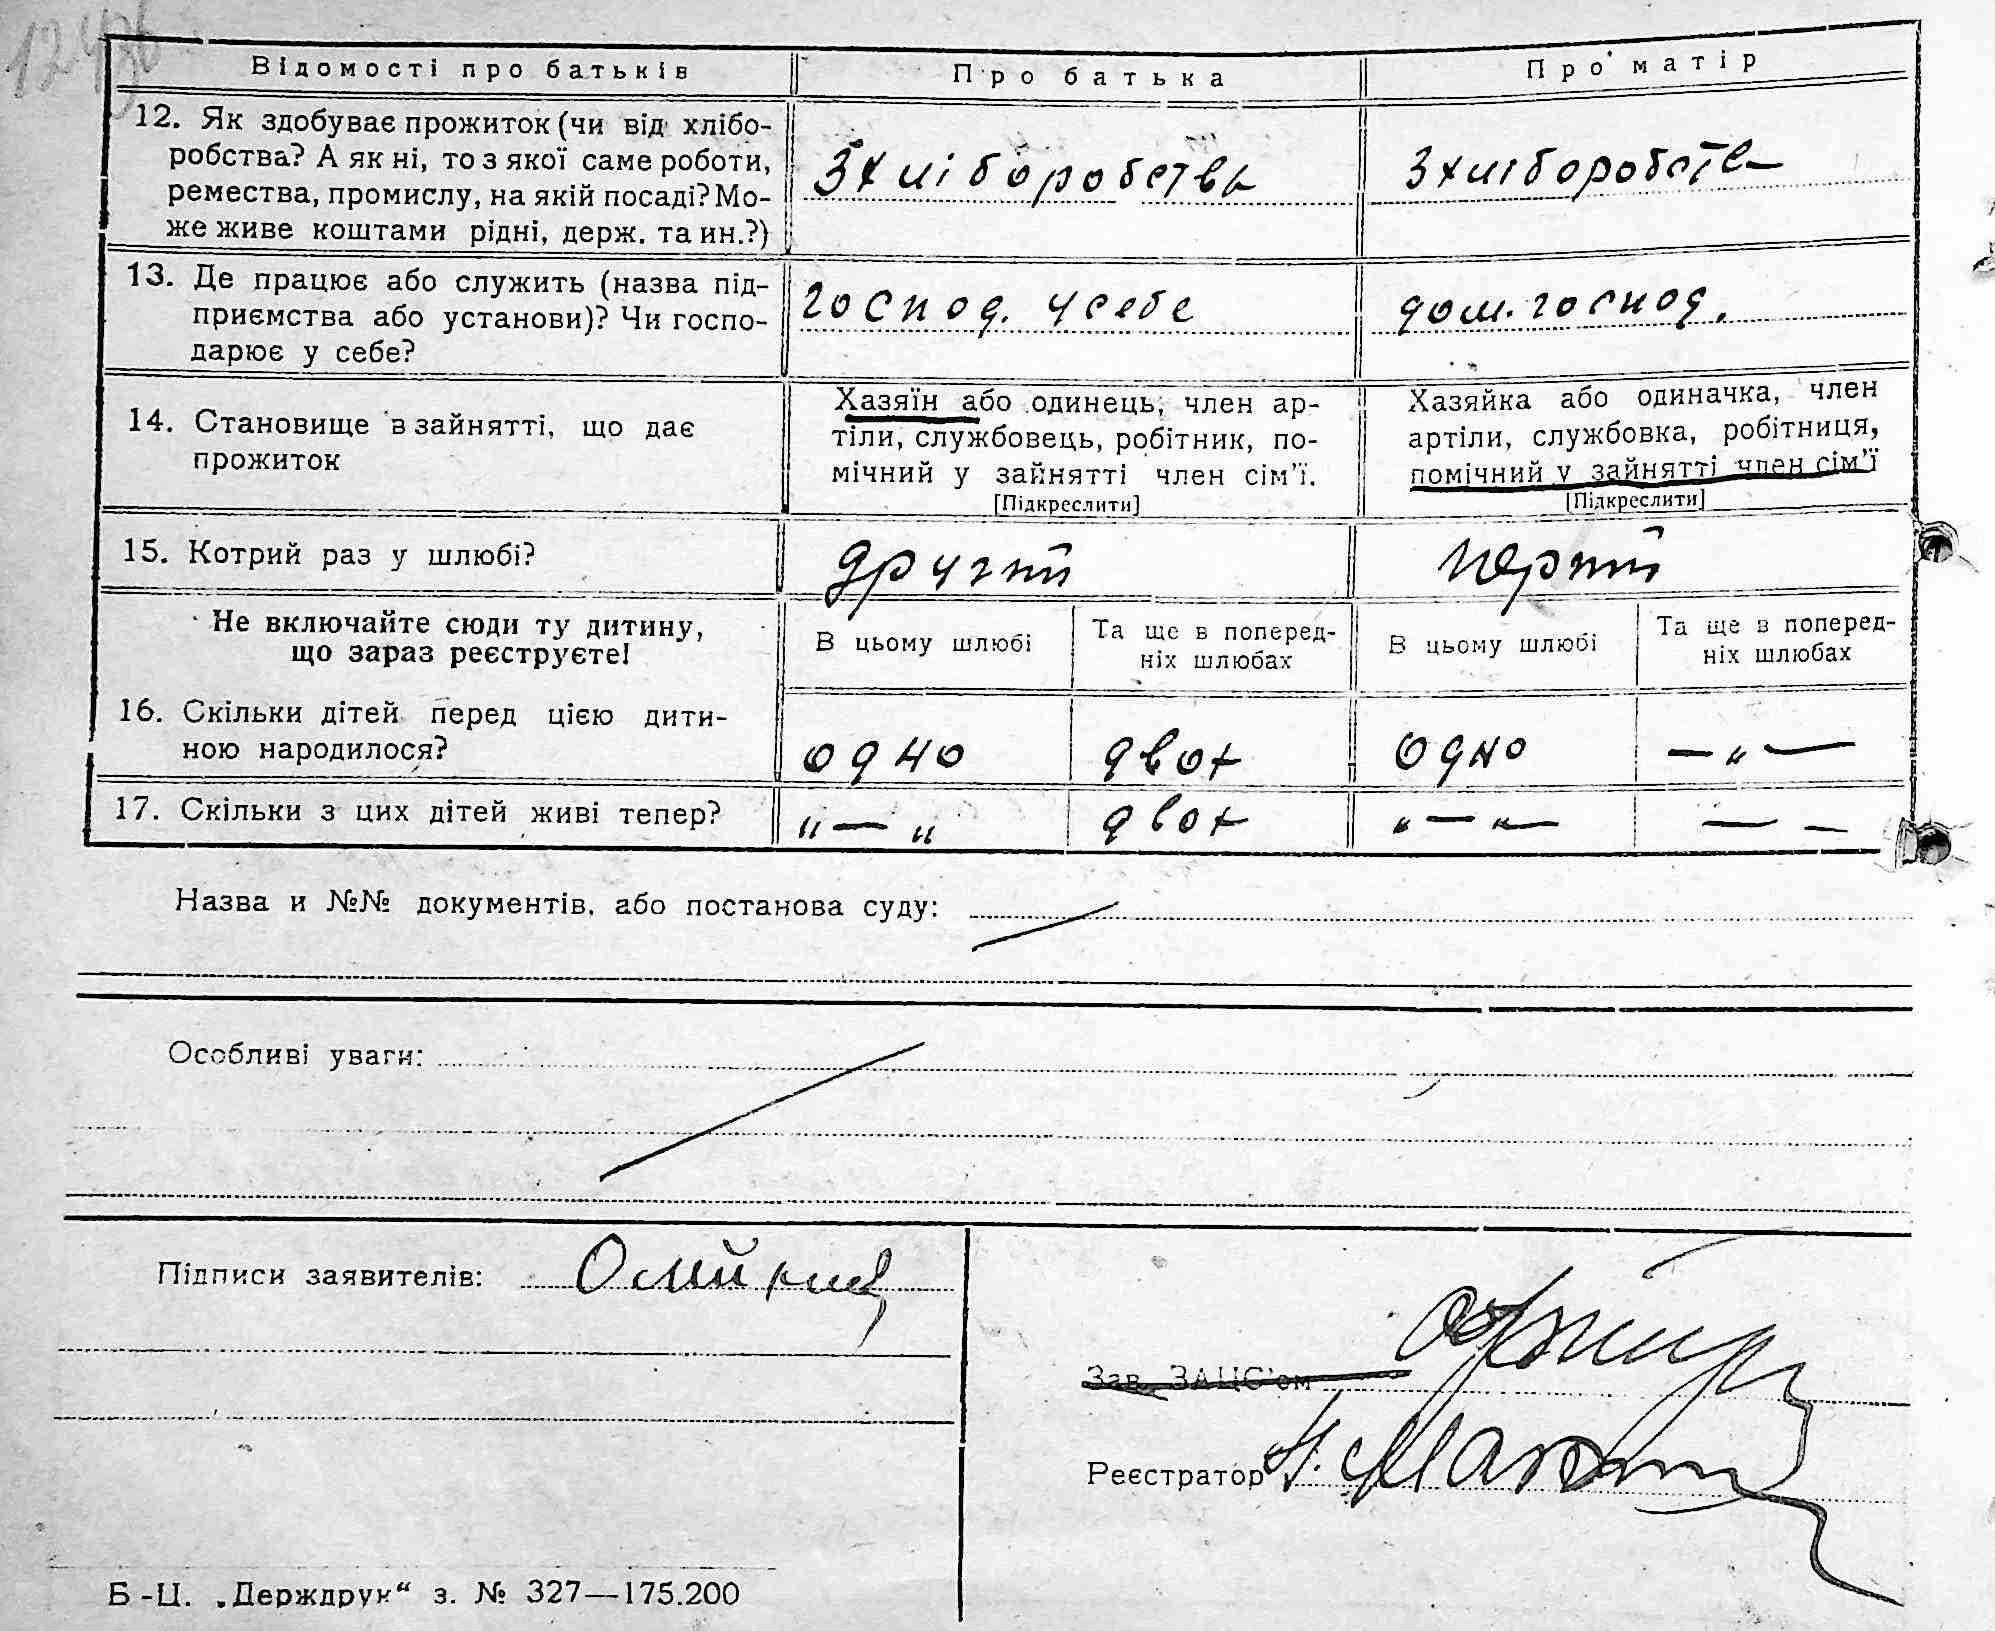 Відомості про батьків Про батька Про матір
12. Як здобуває прожиток (чи від хлібо-
робства? А як ні, то з якої саме роботи,
ремества, промислу, на якій посаді? Мо-
же живе коштами рідні, держ. та ин.?)
З хліборобства З хліборобства
13. Де працює або служить (назва під-
приємства або установи)? Чи госпо-
дарює у себе?
господ. у себе дом. господ.
14. Становище в зайнятті, що дає
прожиток
Хазяїн або одинець, член ар-
тіли, службовець, робітник, по-
мічний у зайнятті член сім'ї.
[Підкреслити]
Хазяйка або одиначка, член
артіли, службовка, робітниця,
помічний у зайнятті член сім'ї
[Підкреслити]
15. Котрий раз у шлюбі? другий перший
Не включайте сюди ту дитину,
що зараз реєструєте!
В цьому шлюбі
Та ще в поперед-
ніх шлюбах
В цьому шлюбі
Та ще в поперед-
ніх шлюбах
16. Скільки дітей перед цією дити-
ною народилося?
одно двох одно — „ —
17. Скільки з цих дітей живі тепер? „ — „ двох „ — „ — — —
Назва и №№ документів, або постанова суду:
Особливі уваги:
Підписи заявителів: Олійник
Зав. ЗАЦС'ом
Реєстратор
Б-Ц. „Держдрук“ з. № 327—175.200